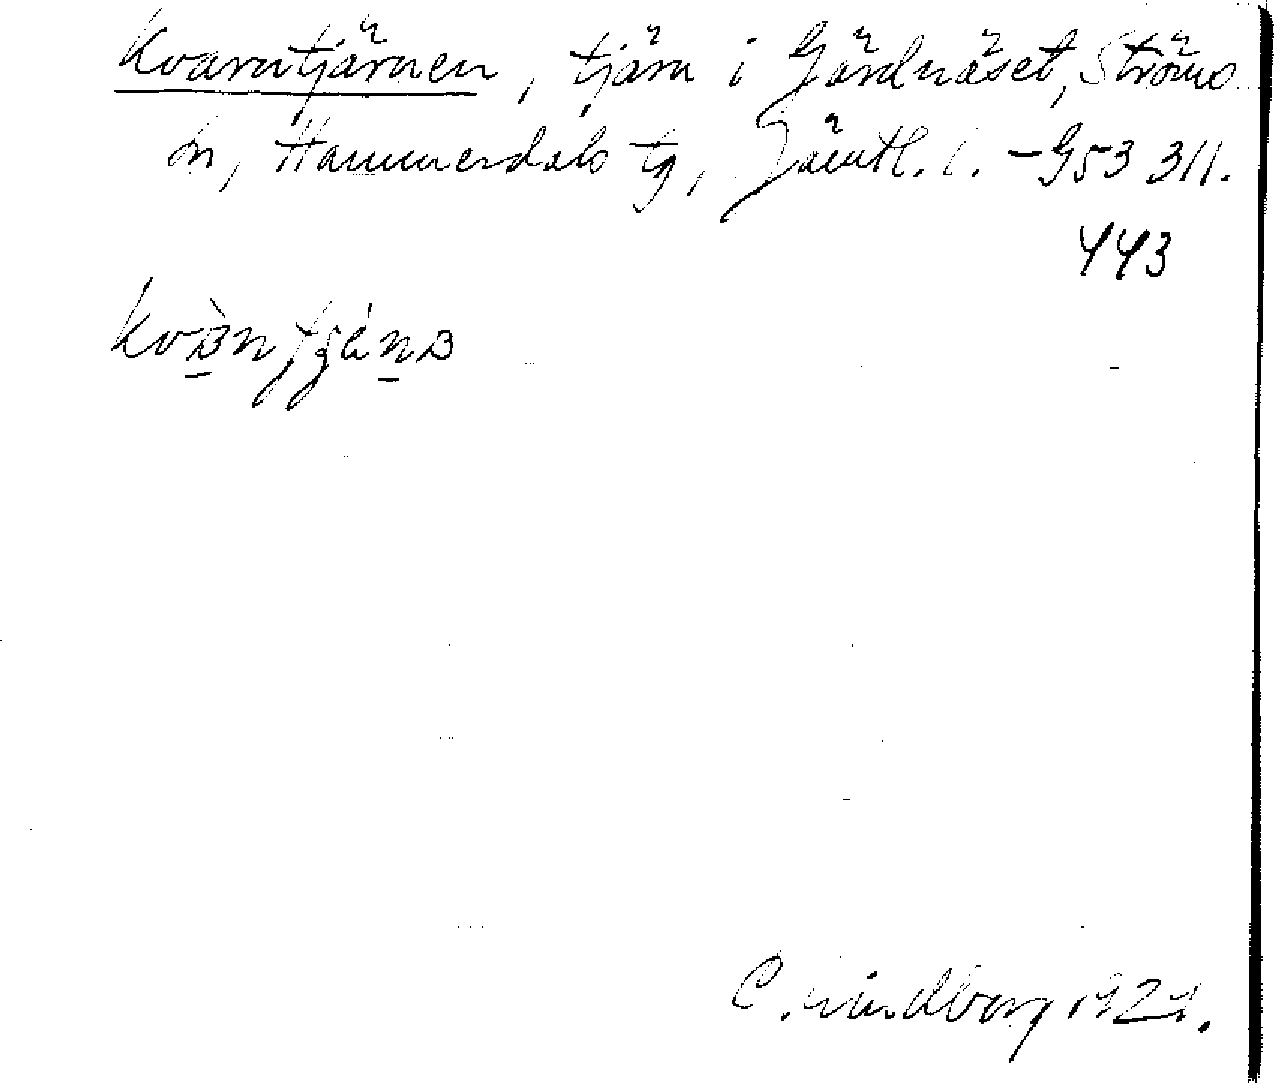 Kvarntjärnen, tjärn i Gärdnäset, Ströms
sn, Hammerdals tg, Jämtl. l. – G53 311.
443
C. Lindberg 1921.